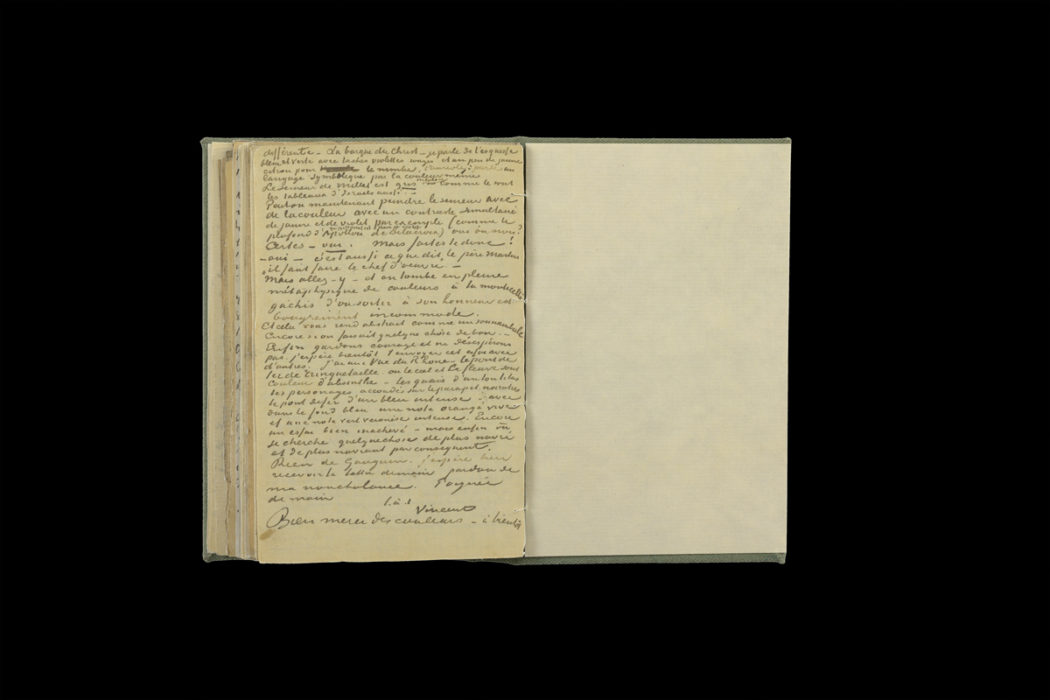 différente – La barque du Christ – je parle de l'esquisse
bleue et verte avec taches violettes rouges et un peu de jaune
citron pour le nimbe, l'auréole – parle un
langage symbolique par la couleur même
Le semeur de Millet est gris incolore – comme le sont
les tableaux d'Israels aussi –
Peut on maintenant peindre le semeur avec
de la couleur avec un contraste simultané
de jaune et de violet par exemple (comme le
plafond d'Apollon de Delacroix) oui ou non?
Certes – oui. Mais faites le donc!
– oui – c'est aussi ce que dit le père Martin
il faut faire le chef d'oeuvre. –
Mais allez – y – et on tombe en pleine
métaphysique de couleurs à la Monticelli
gachis d'où sortir à son honneur est
bougrement incommode.
Et cela vous rend abstrait comme un somnambule
Encore si on faisait quelque chose de bon. –
Enfin gardons courage et ne désespérons
pas j'espère bientôt t'envoyer cet essai avec
d'autres. j'ai une vue du Rhône – le pont de
fer de Trinquetaille où le ciel et le fleuve sont
couleur d'absinthe – les quais d'un ton lilas
les personnages accoudés sur le parapet noiratres
le pont de fer d'un bleu intense – avec
dans le fond bleu une note orangé vive
et une note vert veronèse intense. Encore
un essai bien inachevé – mais enfin où
je cherche quelque chose de plus navré
et de plus navrant par conséquent.
Rien de Gauguin. j'espère bien
recevoir ta lettre demain pardon de
ma nonchalance. Poignée
de main
t. à t.
Vincent
Bien merci des couleurs – à bientôt